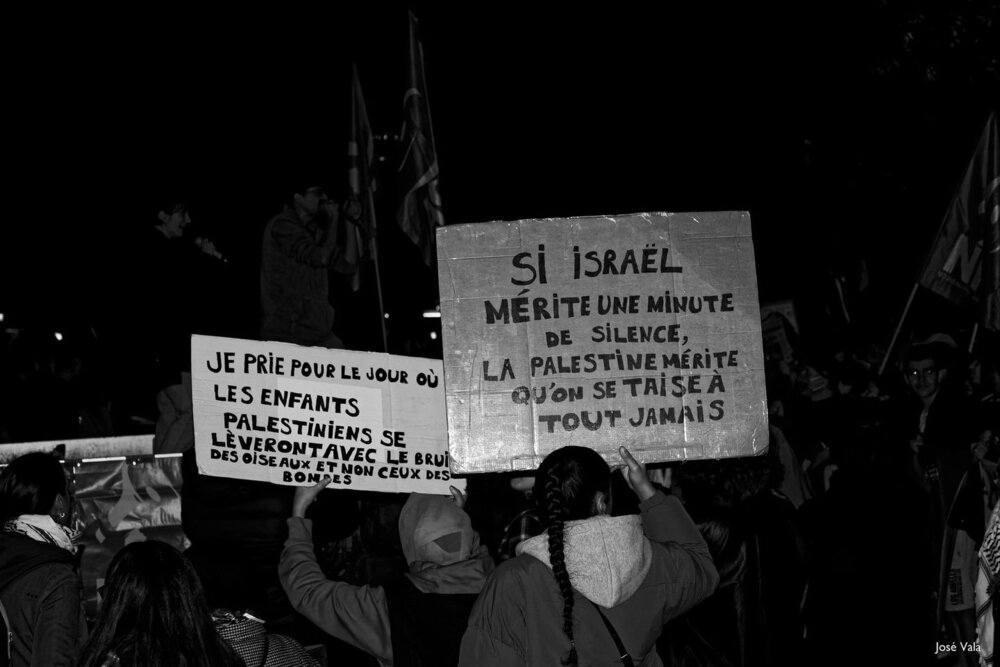 SI ISRAËL
MÉRITE UNE MINUTE
DE SILENCE,
LA PALESTINE MÉRITE
QU'ON SE TAISE À
TOUT JAMAIS
JE PRIE POUR LE JOUR OÙ
LES ENFANTS
PALESTINIENS SE
LÈVERONT AVEC LE BRUI
DES OISEAUX ET NON CEUX DES
BOMBES
José Vala